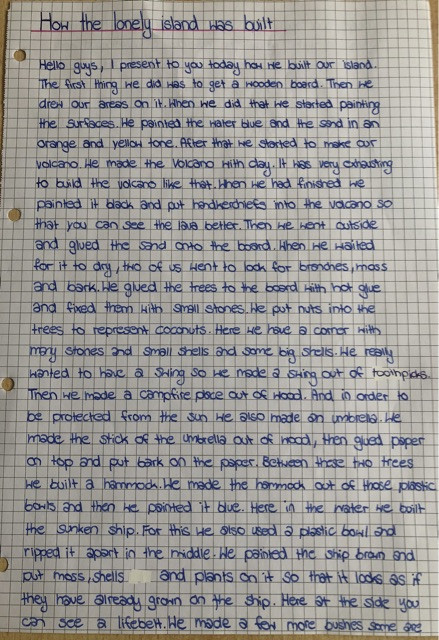 How the lonely island was built
Hello guys, I present to you today how we built our island.
The first thing we did was to get a wooden board. Then we
drew our areas on it. When we did that we started painting
the surfaces. We painted the water blue and the sand in an
orange and yellow tone. After that we started to make our
volcano. We made the volcano with clay. It was very exhausting
to build the volcano like that. When we had finished we
painted it black and put handkerchiefs into the volcano so
that you can see the lava better. Then we went outside
and glued the sand onto the board. When we waited
for it to dry, two of us went to look for branches, moss
and bark. We glued the trees to the board with hot glue
and fixed them with small stones. We put nuts into the
trees to represent coconuts. Here we have a corner with
many stones and small shells and some big shells. We really
wanted to have a swing so we made a swing out of toothpicks.
Then we made a campfire place out of wood. And in order to
be protected from the sun we also made an umbrella. We
made the stick of the umbrella out of wood, then glued paper
on top and put bark on the paper. Between these two trees
we built a hammock. We made the hammock out of those plastic
bowls and then we painted it blue. Here in the water we built
the sunken ship. For this we also used a plastic bowl and
ripped it apart in the middle. We painted the ship brown and
put moss, shells and plants on it so that it looks as if
they have already grown on the ship. Here at the side you
can see a lifebelt. We made a few more bushes some are